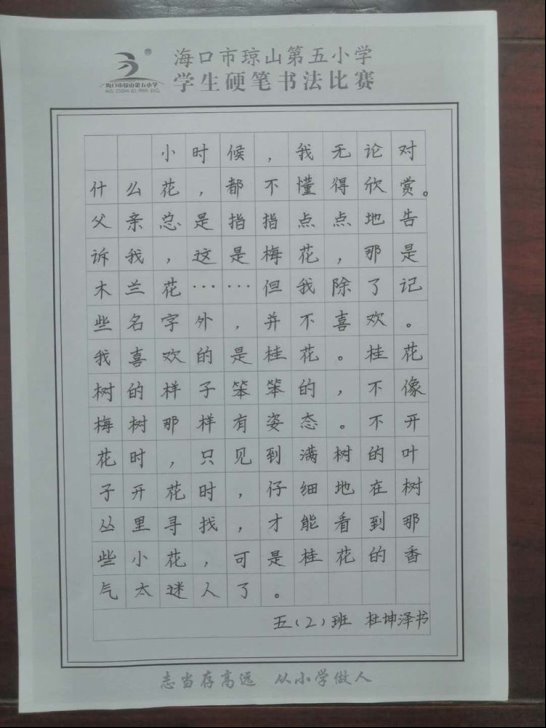 海口市琼山第五小学
学生硬笔书法比赛
海口市琼山第五小学
小时候，我无论对
什么花，都不懂得欣赏。
父亲总是指指点点地告
诉我，这是梅花，那是
木兰花……但我除了记
些名字外，并不喜欢。
我喜欢的是桂花。桂花
树的样子笨笨的，不像
梅树那样有姿态。不开
花时，只见到满树的叶
子开花时，仔细地在树
丛里寻找，才能看到那
些小花，可是桂花的香
气太迷人了。
五（2）班 杜坤泽书
志当存高远 从小学做人